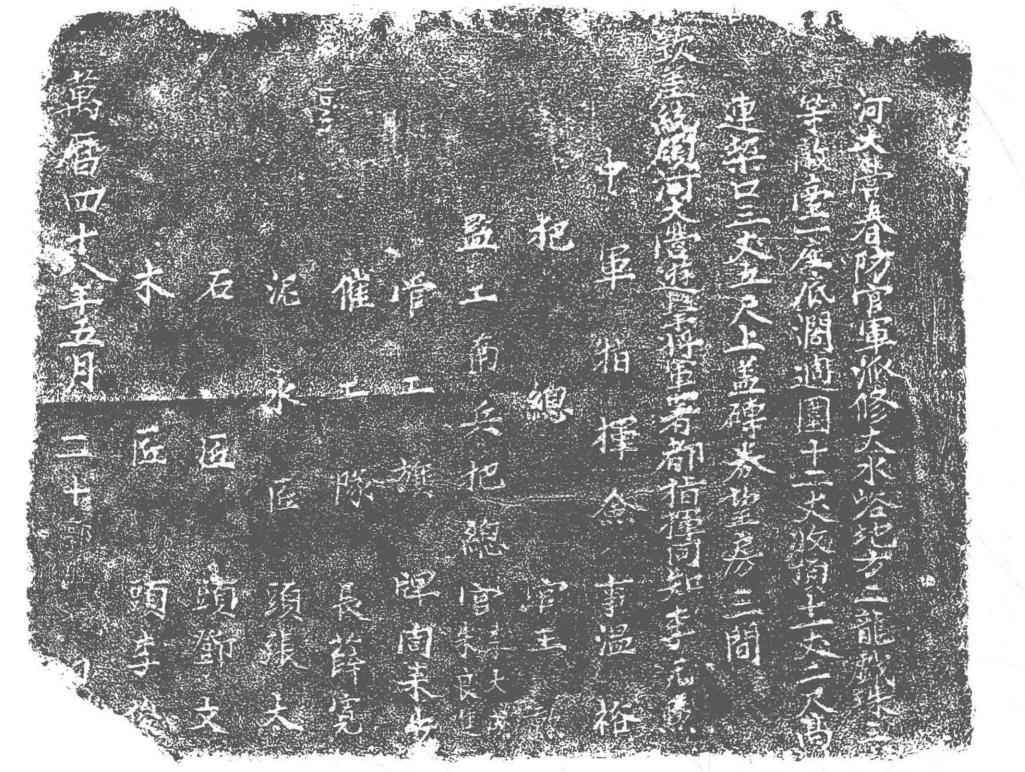 河大營春防官軍派修大水峪地方二龍戲珠三
等敵臺一座底濶週圍十二丈收頂十一丈二尺高
連垜口三丈五尺上蓋磚券望房三間
欽差統領河大營遊擊將軍署都指揮同知李
中軍指揮僉事溫裕
把總官王
監工南兵把總官李天 朱良
管工旗牌周來
催工隊長薛寬
泥水匠頭張太
石匠頭節文
木匠頭李
萬曆四十八年五月二十